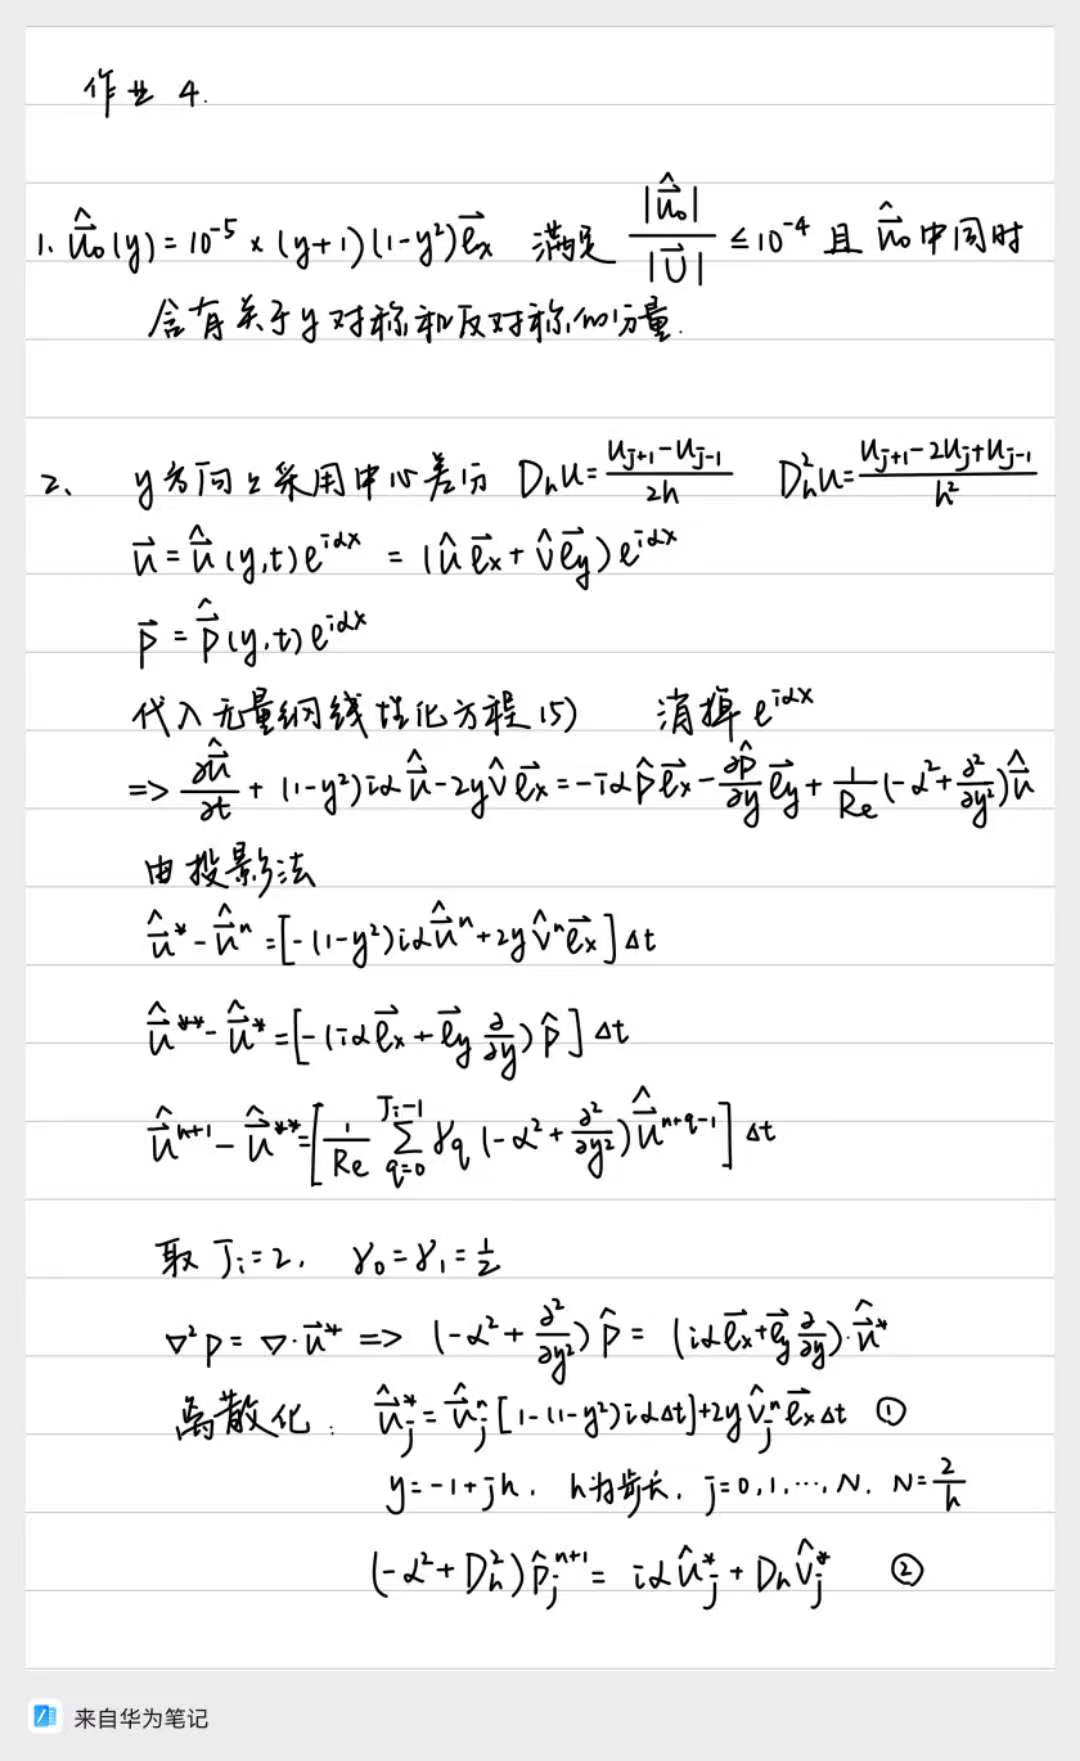 作业 4.
1. $\hat{\vec{u}}_0(y) = 10^{-5} \times (y+1)(1-y^2)\vec{e}_x$ 满足 $\frac{|\hat{\vec{u}}_0|}{|\vec{U}|} \leq 10^{-4}$ 且 $\hat{\vec{u}}_0$ 中同时
含有关于 y 对称和反对称的分量.
2、 y方向上采用中心差分 $D_h u = \frac{u_{j+1} - u_{j-1}}{2h}$ $D_h^2 u = \frac{u_{j+1} - 2u_j + u_{j-1}}{h^2}$
$\vec{u} = \hat{\vec{u}}(y,t)e^{i\alpha x} = (\hat{u}\vec{e}_x + \hat{v}\vec{e}_y)e^{i\alpha x}$
$\vec{p} = \hat{\vec{p}}(y,t)e^{i\alpha x}$
代入无量纲线性化方程(5) 消掉 $e^{i\alpha x}$
$\Rightarrow \frac{\partial \hat{\vec{u}}}{\partial t} + (1-y^2)i\alpha\hat{\vec{u}} - 2y\hat{v}\vec{e}_x = -i\alpha\hat{p}\vec{e}_x - \frac{\partial \hat{p}}{\partial y}\vec{e}_y + \frac{1}{Re}(-\alpha^2 + \frac{\partial^2}{\partial y^2})\hat{\vec{u}}$
由投影法
$\hat{\vec{u}}^* - \hat{\vec{u}}^n = [-(1-y^2)i\alpha\hat{\vec{u}}^n + 2y\hat{v}^n\vec{e}_x]\Delta t$
$\hat{\vec{u}}^{**} - \hat{\vec{u}}^* = [-(i\alpha\vec{e}_x + \vec{e}_y\frac{\partial}{\partial y})\hat{p}]\Delta t$
$\hat{\vec{u}}^{n+1} - \hat{\vec{u}}^{**} = [\frac{1}{Re}\sum_{q=0}^{J_i-1}\gamma_q(-\alpha^2 + \frac{\partial^2}{\partial y^2})\hat{\vec{u}}^{n+q-1}]\Delta t$
取 $J_i = 2$, $\gamma_0 = \gamma_1 = \frac{1}{2}$
$\nabla^2 p = \nabla \cdot \vec{u}^* \Rightarrow (-\alpha^2 + \frac{\partial^2}{\partial y^2})\hat{p} = (i\alpha\vec{e}_x + \vec{e}_y\frac{\partial}{\partial y}) \cdot \hat{\vec{u}}^*$
离散化: $\hat{\vec{u}}_j^* = \hat{\vec{u}}_j^n[1-(1-y^2)i\alpha\Delta t] + 2y\hat{v}_j^n\vec{e}_x\Delta t$ ①
$y = -1 + jh$. h为步长. $j = 0, 1, \cdots, N$. $N = \frac{2}{h}$
$(-\alpha^2 + D_h^2)\hat{p}_j^{n+1} = i\alpha\hat{u}_j^* + D_h\hat{v}_j^*$ ②
来自华为笔记